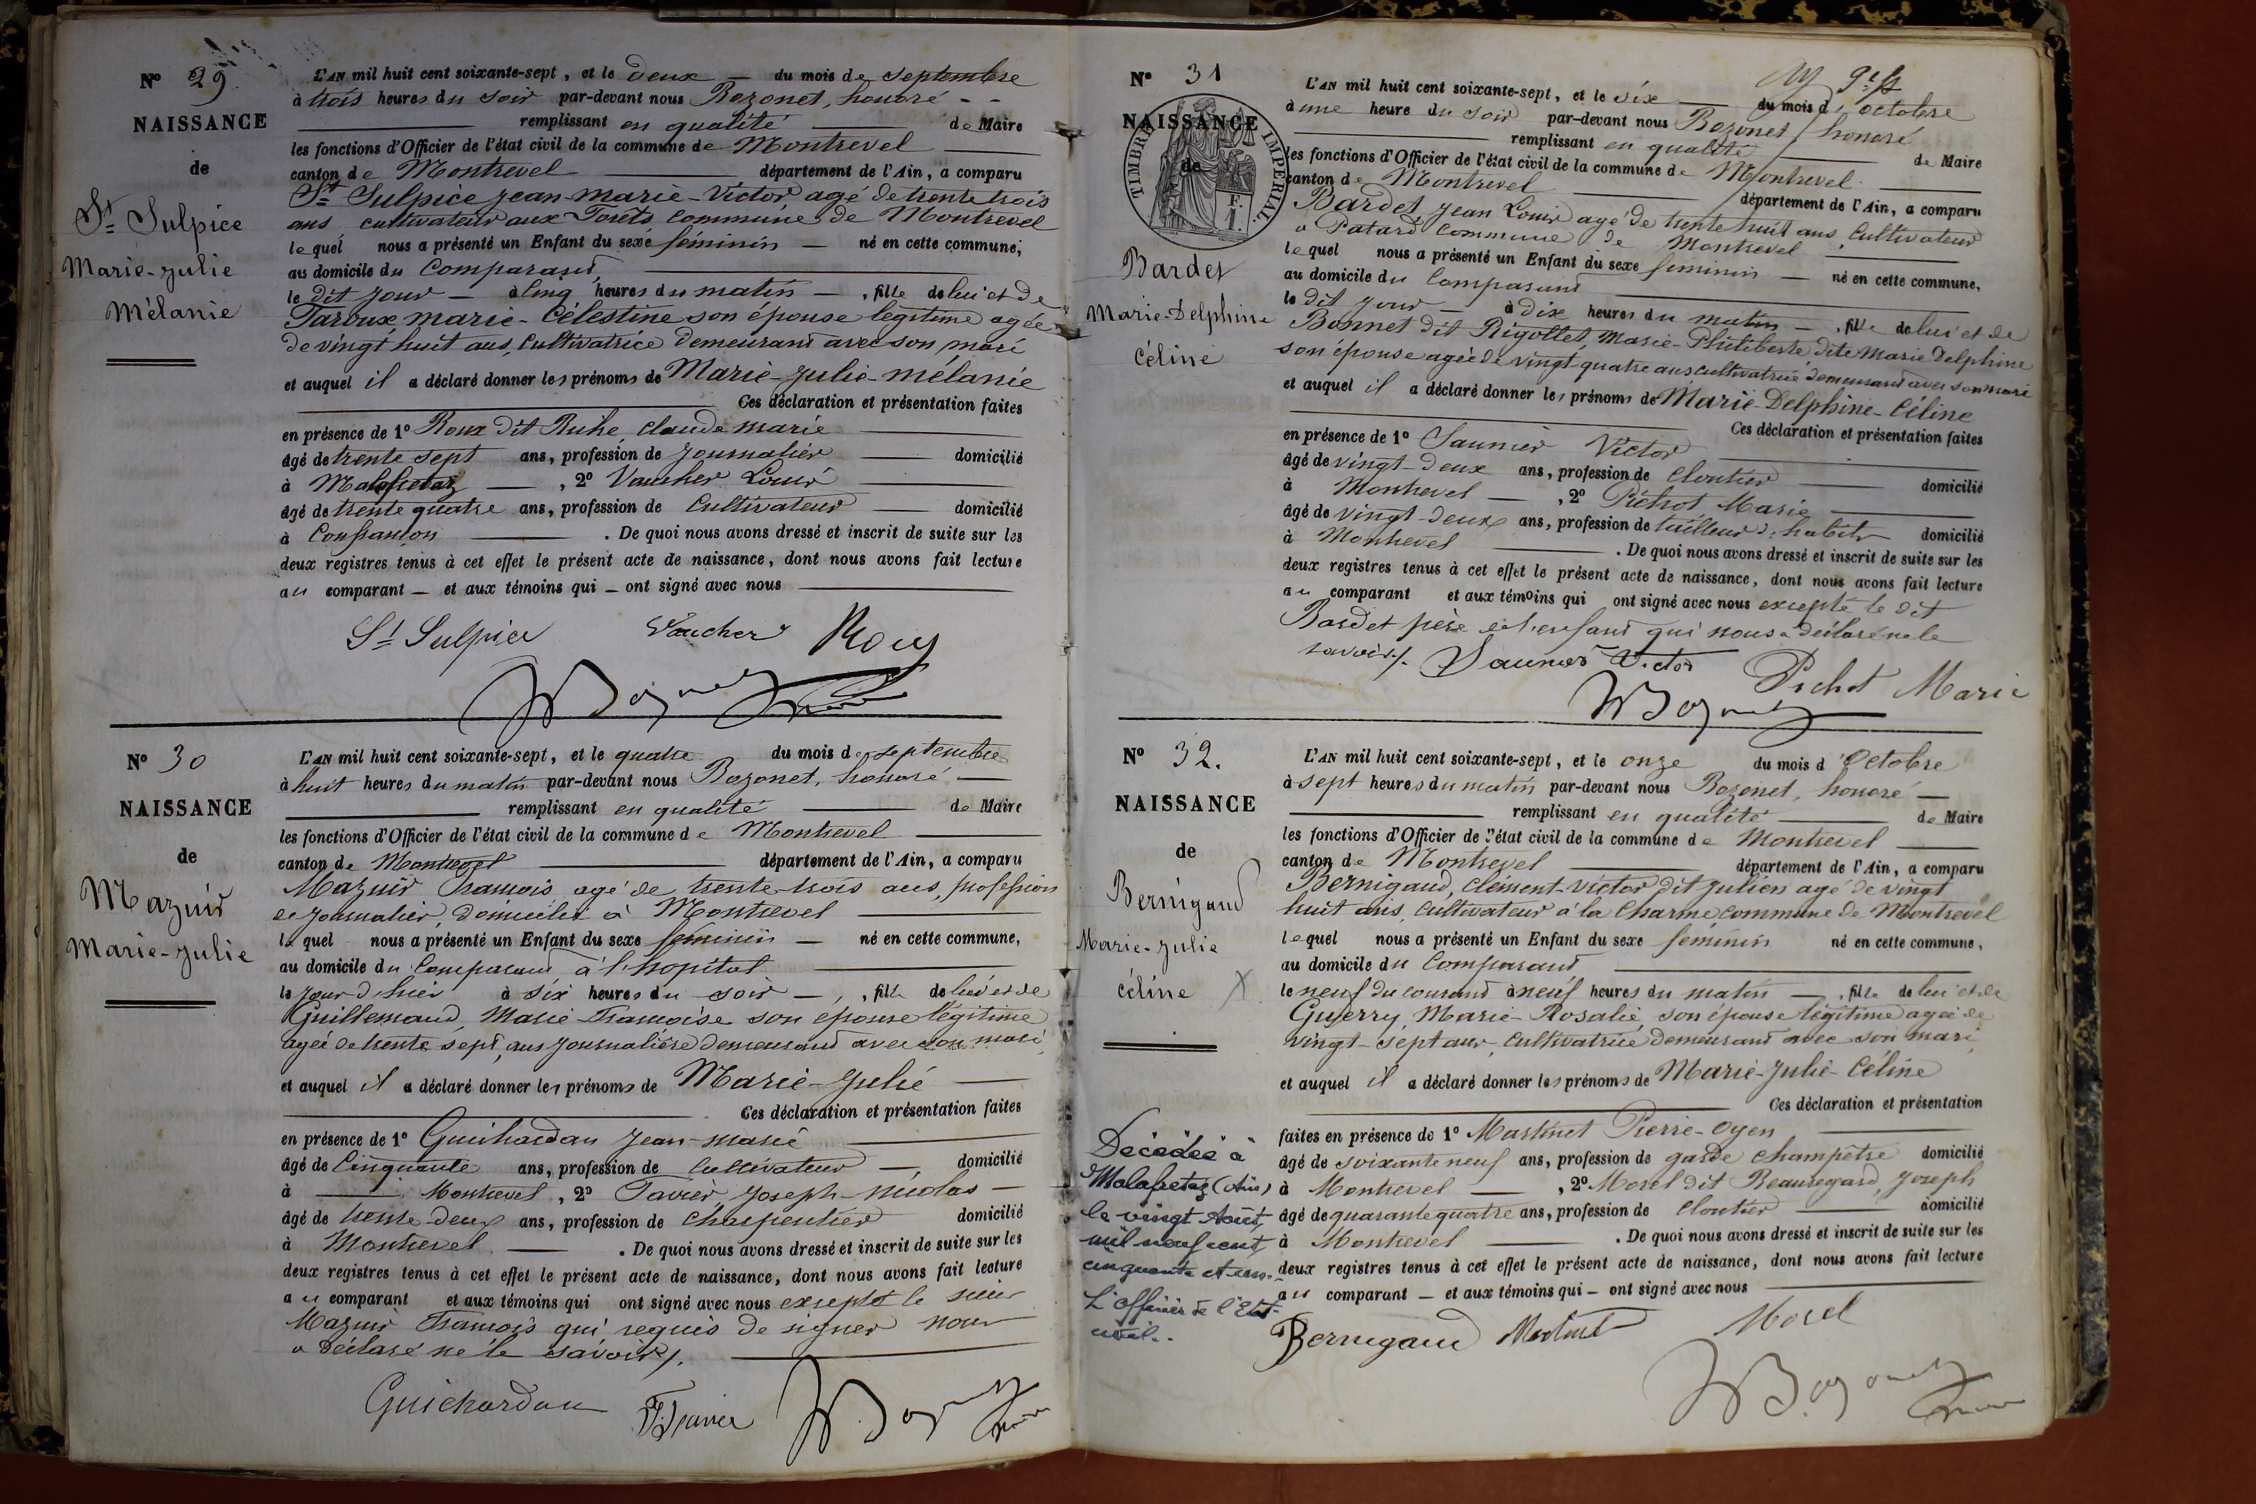 N° 29
NAISSANCE
de
St Sulpice
Marie-Julie
Mélanie
L'AN mil huit cent soixante-sept, et le deux — du mois de Septembre
à trois heures du soir par-devant nous Bozonet, honoré - -
remplissant en qualité de Maire
les fonctions d'Officier de l'état civil de la commune de Montrevel
canton de Montrevel département de l'Ain, a comparu
St Sulpice Jean-Marie-Victor agé de trente trois
ans cultivateur aux commune de Montrevel
lequel nous a présenté un Enfant du sexe féminin — né en cette commune,
au domicile du Comparant
le dit jour — à cinq heures du matin — , fille de lui et de
Taroux, Marie-Célestine son épouse légitime agée
de vingt huit ans, Cultivatrice demeurant avec son mari
et auquel il a déclaré donner les prénoms de Marie-Julie-Mélanie
Ces déclaration et présentation faites
en présence de 1° Roux dit Ruhe, Claude Marie
âgé de trente sept ans, profession de Journalier domicilié
à Malafretaz — , 2° Vaucher Louis
âgé de trente quatre ans, profession de Cultivateur domicilié
à Confrançon . De quoi nous avons dressé et inscrit de suite sur les
deux registres tenus à cet effet le présent acte de naissance, dont nous avons fait lecture
au comparant — et aux témoins qui — ont signé avec nous
St Sulpice Vaucher Roux
Bozonet
N° 30
NAISSANCE
de
Mazuir
Marie-Julie
L'AN mil huit cent soixante-sept, et le quatre du mois de septembre
à huit heures du matin par-devant nous Bozonet, honoré —
remplissant en qualité de Maire
les fonctions d'Officier de l'état civil de la commune de Montrevel
canton de Montrevel département de l'Ain, a comparu
Mazuir François agé de trente-trois ans, profession
de Journalier, domicilié à Montrevel
lequel nous a présenté un Enfant du sexe féminin — né en cette commune,
au domicile du Comparant à l'hopital
le jour d'hier à six heures du soir — , fille de lui et de
Guillemaud, Marie Françoise son épouse légitime
agée de trente sept ans Journalière demeurant avec son mari
et auquel il a déclaré donner les prénoms de Marie-Julie
Ces déclaration et présentation faites
en présence de 1° Guichardan Jean-Marie
âgé de Cinquante ans, profession de Cultivateur —, domicilié
à Montrevel, 2° Tavier, Joseph-Nicolas —
âgé de trente-deux ans, profession de Charpentier domicilié
à Montrevel — . De quoi nous avons dressé et inscrit de suite sur les
deux registres tenus à cet effet le présent acte de naissance, dont nous avons fait lecture
au comparant et aux témoins qui ont signé avec nous excepté le sieur
Mazuir François qui requis de signer nous
a déclaré ne le savoir /.
Guichardan Tavier Bozonet
N° 31
NAISSANCE
de
TIMBRE IMPÉRIAL
1 F.
Bardet
Marie-Delphine
Céline
L'AN mil huit cent soixante-sept, et le six du mois d'octobre
à une heure du soir par-devant nous Bozonet, honoré
remplissant en qualité de Maire
les fonctions d'Officier de l'état civil de la commune de Montrevel
canton de Montrevel département de l'Ain, a comparu
Bardet, Jean Louis agé de trente huit ans, Cultivateur
à Patard commune de Montrevel
lequel nous a présenté un Enfant du sexe féminin — né en cette commune,
au domicile du Comparant
le dit jour — à dix heures du matin — , fille de lui et de
Bonnet dit Rigollet, Marie-Philiberte dite Marie Delphine
son épouse agée de vingt-quatre ans cultivatrice demeurant avec son mari
et auquel il a déclaré donner les prénoms de Marie-Delphine-Céline
Ces déclaration et présentation faites
en présence de 1° Saunier Victor
âgé de vingt-deux ans, profession de Cloutier domicilié
à Montrevel — , 2° Pichot Marie
âgé de vingt-deux ans, profession de tailleur d'habits domicilié
à Montrevel . De quoi nous avons dressé et inscrit de suite sur les
deux registres tenus à cet effet le présent acte de naissance, dont nous avons fait lecture
au comparant et aux témoins qui ont signé avec nous excepté le dit
Bardet père de l'enfant qui nous a déclaré ne le
savoir /. Saunier Victor Pichot Marie
Bozonet
N° 32.
NAISSANCE
de
Bernigaud
Marie-Julie
Céline X
L'AN mil huit cent soixante-sept, et le onze du mois d'Octobre
à sept heures du matin par-devant nous Bozonet, honoré —
remplissant en qualité de Maire
les fonctions d'Officier de l'état civil de la commune de Montrevel
canton de Montrevel département de l'Ain, a comparu
Bernigaud, Clément-Victor dit Julien agé de vingt
huit ans, cultivateur à la Charme commune de Montrevel
lequel nous a présenté un Enfant du sexe féminin né en cette commune,
au domicile du Comparant
le neuf du courant à neuf heures du matin — , fille de lui et de
Guyerry, Marie-Rosalie, son épouse légitime agée de
vingt-sept ans, Cultivatrice demeurant avec son mari
et auquel il a déclaré donner les prénoms de Marie-Julie-Céline
Ces déclaration et présentation
faites en présence de 1° Martinet Pierre-Oyen
âgé de soixante neuf ans, profession de garde champêtre domicilié
à Montrevel — , 2° Morel dit Beauregard, Joseph
âgé de quarante quatre ans, profession de Cloutier domicilié
à Montrevel . De quoi nous avons dressé et inscrit de suite sur les
deux registres tenus à cet effet le présent acte de naissance, dont nous avons fait lecture
au comparant — et aux témoins qui — ont signé avec nous
Bernigaud Martinet Morel
Bozonet
Décédée à
Malafretaz (Ain)
le vingt Août
mil neuf cent
cinquante et un.
L'officier de l'Etat-
civil.